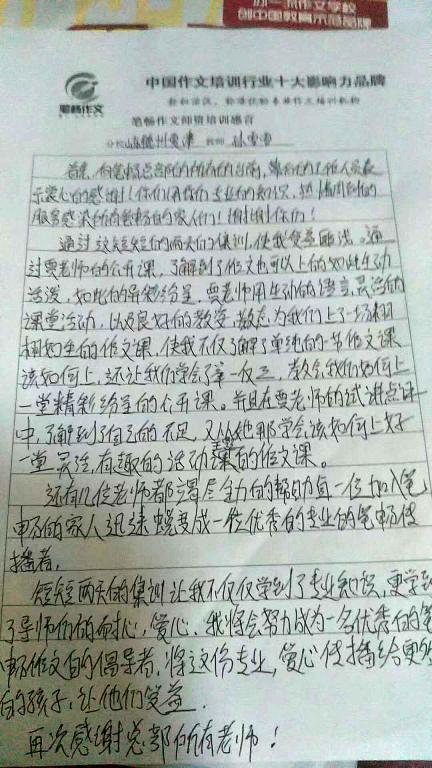 苏一派作文学校
创中国教育示范品牌
笔畅作文
中国作文培训行业十大影响力品牌
笔畅作文师资培训感言
分校 山东德州夏津 教师 孙雪雪
首先,向笔畅总部的所有的老师,工作人员表
示衷心的感谢!你们用你们专业的知识,热情周到的
服务感染所有笔畅的家人们!谢谢你们!
通过这短短的两天的集训,使我受益匪浅。通
过贾老师的公开课,了解到了作文也可以上的如此生动
活泼,如此的异彩纷呈,贾老师用生动的语言,灵活的
课堂活动,以及良好的教姿、教态为我们上了一场栩
栩如生的作文课,使我不仅了解了单纯的一节作文课
该如何上,还让我们学会了举一反三,教会我们如何上
一堂精彩纷呈的公开课。并且在贾老师的试讲点评
中,了解到了自己的不足,又从她那学会该如何上好
一堂灵活,有趣的活动的作文课。
还有几位老师都竭尽全力的帮助每一位加入笔
畅的家人迅速蜕变成一位优秀的专业的笔畅传
播者。
短短两天的集训让我不仅仅学到了专业知识,更学到
了导师们的耐心,爱心,我将会努力成为一名优秀的笔
畅作文的倡导者,将这份专业,爱心传播给更多
的孩子,让他们受益.
再次感谢总部所有老师!